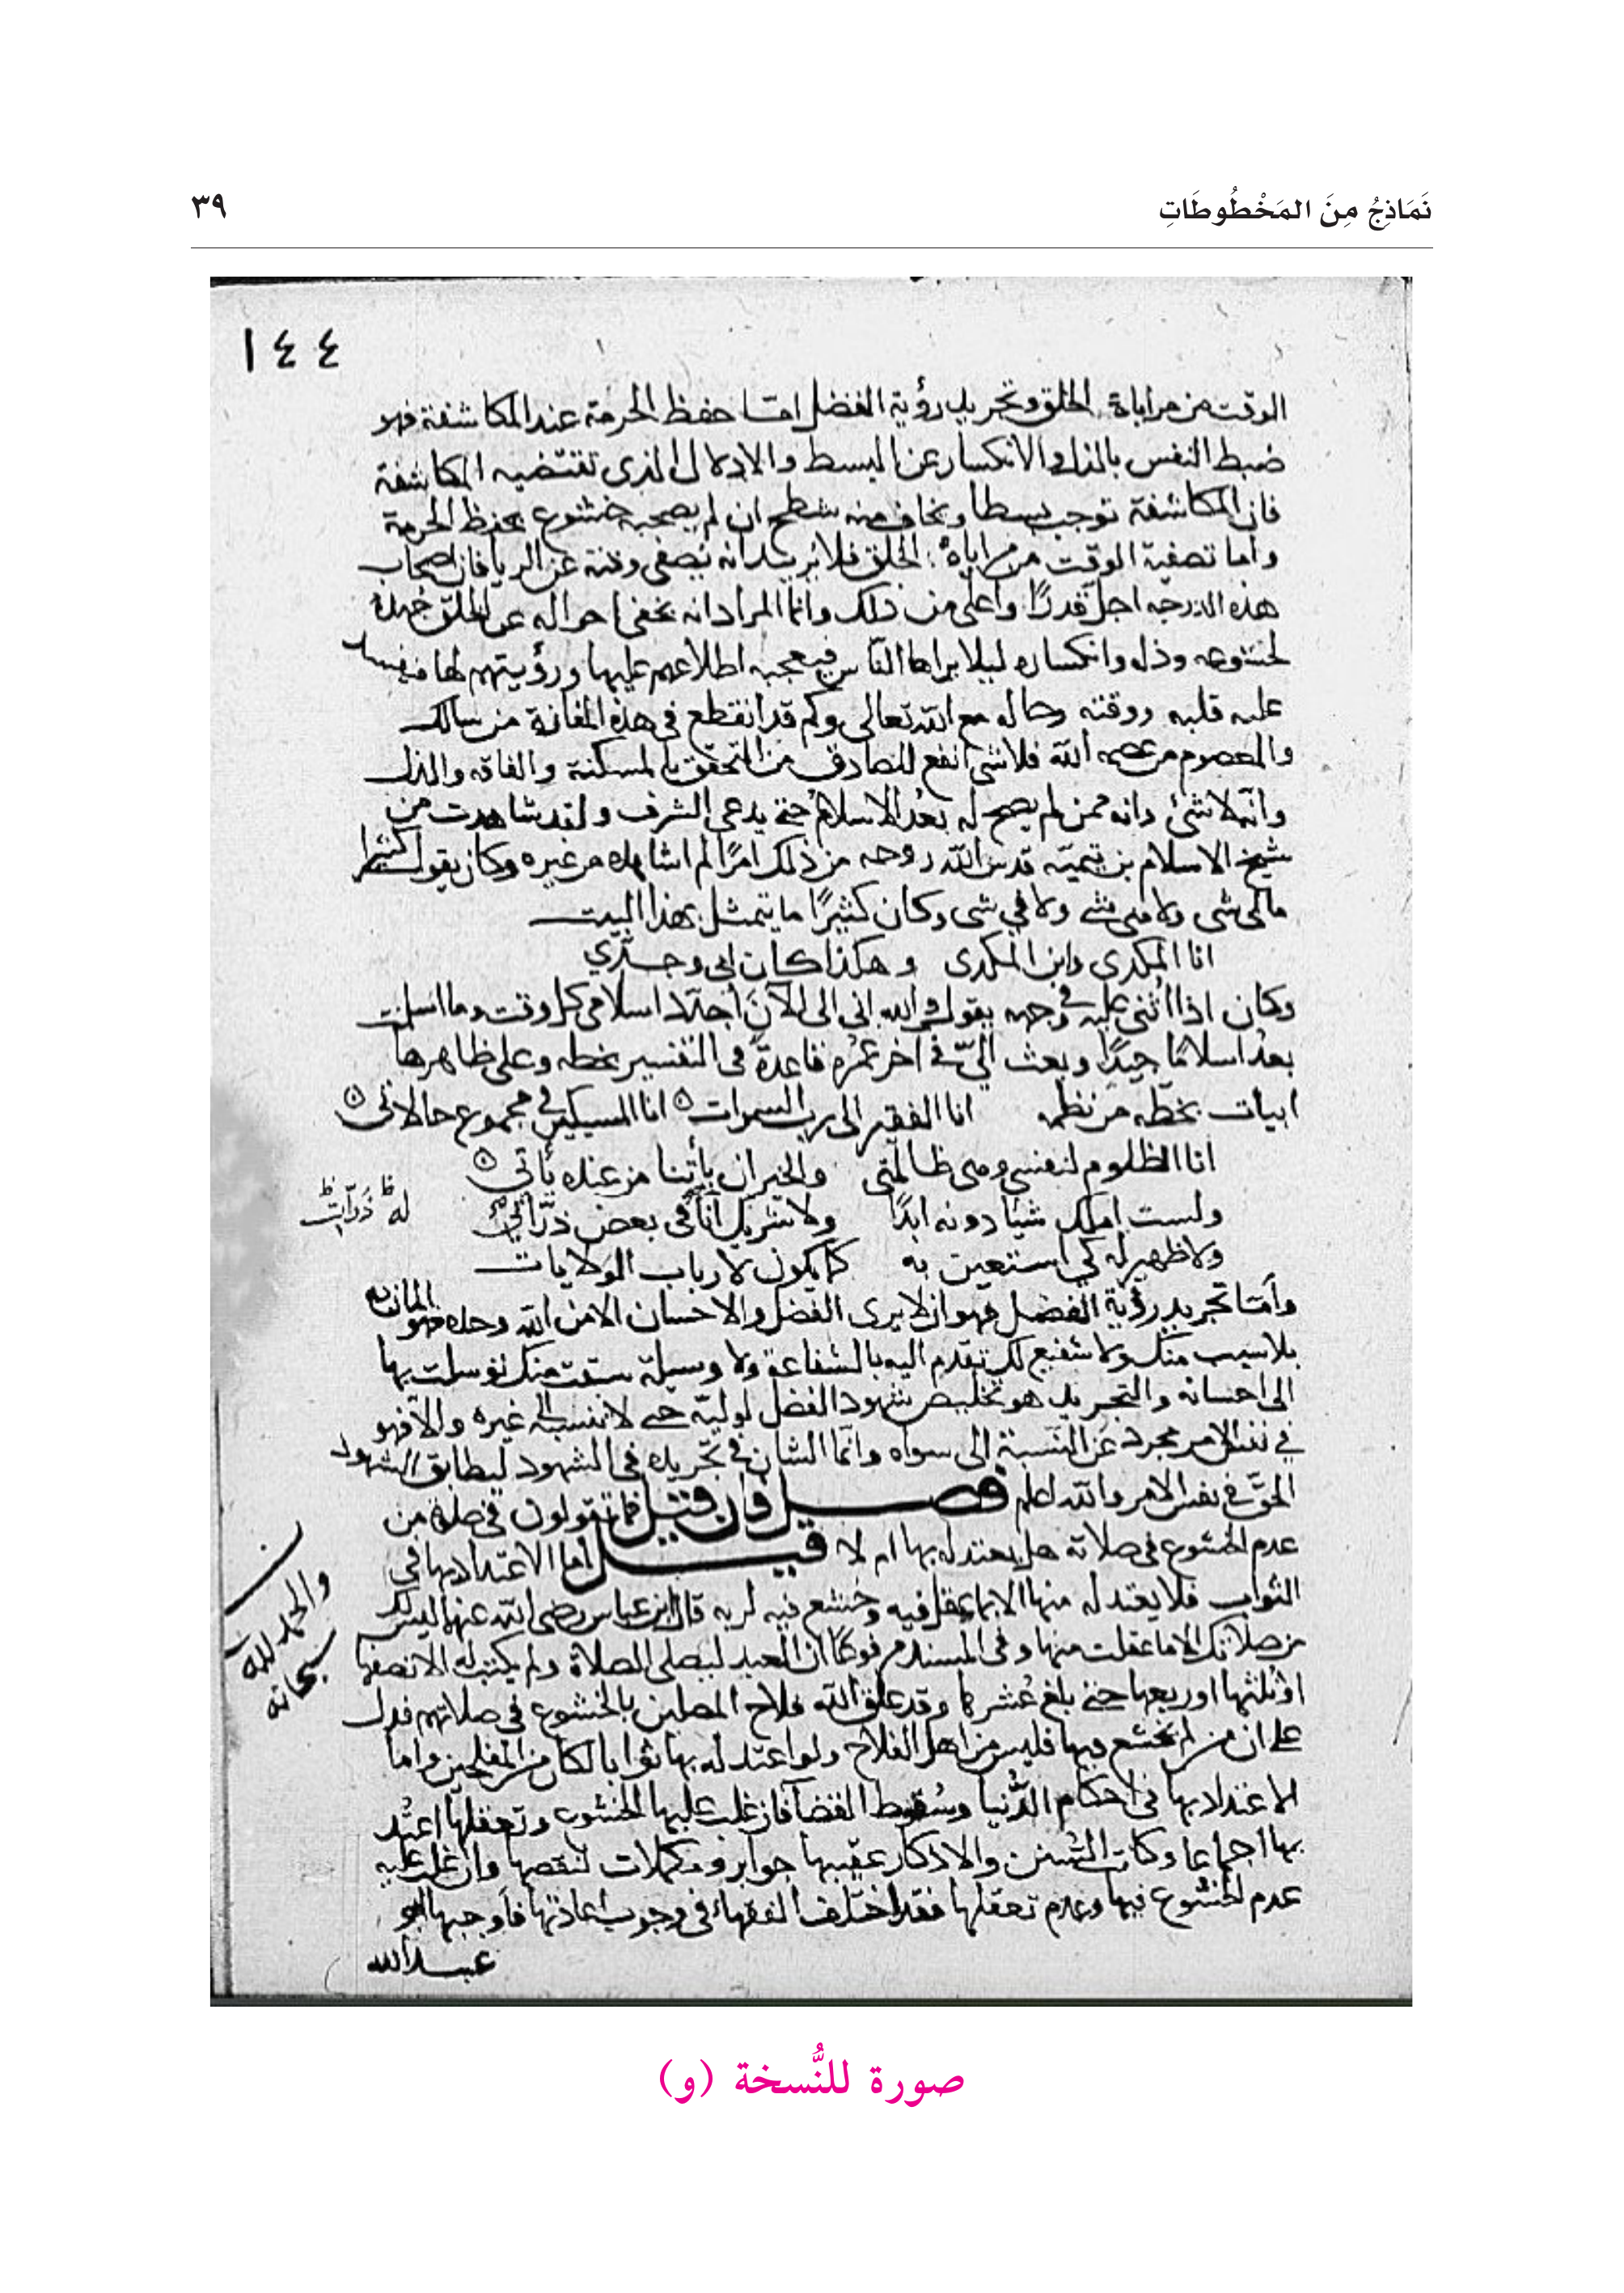 نَمَاذِجُ مِنَ المَخْطُوطَاتِ
٣٩
١٤٤
الوقت من مراياة الخلق وتجريد رؤية الفضل امّا حفظ الحرمة عند المكاشفة فهو
ضبط النفس بالذل والانكسار عن البسط والادلال الذى تقتضيه المكاشفة
فان المكاشفة توجب بسطا ويخاف منه شطح ان لم يصحبه خشوع يحفظ الحرمة
واما تصفية الوقت من مراياة الخلق فلا يريد انه يصفى وقته عن الريا فان اصحاب
هذه الدرجه اجل قدرًا واعلى من ذلك وانما المراد انه يخفى احواله عن الخلق جهده
لخشوعه وذله وانكساره ليلا يراها النّاس فيعجبه اطلاعهم عليها ورؤيتهم لها فيفسد
عليه قلبه ووقته وحاله مع الله تعالى وكم قد انقطع فى هذه المفازة من سالك
والمعصوم من عصمه الله فلا شى انفع للصادق من التحقق بالمسكنة والفاقه والذل
وانّه لا شئ وانه ممن لم يصح له بعدُ الاسلام حتى يدعى الشرف ولقد شاهدت من
شيخ الاسلام بن تيميّه قدس الله روحه من ذلك امرًا لم اشاهده من غيره وكان يقول كثيرا
مالى شى ولا منى شى ولا فىّ شى وكان كثيرًا ما يتمثل بهذا البيت
انا المكدى وابن المكدى وهكذا كان ابى وجدّي
وكان اذا اُثنى عليه فى وجهه يقول والله انى الى الآن اجدّد اسلامى كل وقت وما اسلمت
بعدُ اسلامًا جيدًا وبعث الىّ فى اخر عمره قاعدةً فى التفسير بخطه وعلى ظاهرها
ابيات بخطّه من نظمه انا الفقير الى رب السموات انا المسيكين فى مجموع حالاتى
انا الظلوم لنفسى وهى ظالمتى والخير ان يأتنا من عنده يأتى
ولست املك شيًا دونه ابدًا ولا شريك انا فى بعض ذرّاتى
له ظ ذرّات ظ
ولا ظهير له كى استعين به كما يكون لارباب الولايات
وأمّا تجريد رؤية الفضل فهو ان لا يرى الفضل والاحسان الا من الله وحده فهو المانّ به
بلا سبب منك ولا شفيع لك تقدّم اليه بالشفاعة ولا وسيلة سبقت منك توسلت بها
الى احسانه والتجريد هو تخليص شهود الفضل لوليّه حتى لا ننسبه الى غيره والّا فهو
فى نفس الامر مجرد عن النسبة الى سواه وانّما الشان فى تجّريده فى الشهود ليطابق الشهود
الحقّ فى نفس الامر والله اعلم فصـــل فان قيل فما تقولون فى صلاة من
عدم الخشوع فى صلاته هل يعتد له بها ام لا قيـــل اما الاعتداد بها فى
الثواب فلا يعتد له منها الا بما عقل فيه وخشع فيه لربه قال ابن عباس رضى الله عنهما ليس لك
من صلاتك الا ما عقلت منها وفى المسند مرفوعًا ان العبد ليصلى الصلاة ولم يكتب له الا نصفها
او ثلثها او ربعها حتى بلغ عُشرها وقد علق الله فلاح المصلين بالخشوع فى صلاتهم فدل
على ان من لم يخشع فيها فليس من اهل الفلاح ولو اعتد له بها ثوابا لكان من المفلحين واما
الاعتداد بها فى احكام الدُّنيا وسُقوط القضا فان غلب عليها الخشوع وتعقلها اعتُد
بها اجماعا وكانت السُّنن والاذكار عقيبها جوابر ومكملات لنقصها وان غلب عليه
عدم الخشوع فيها وعدم تعقلها فقد اختلف الفقهاء فى وجوب اعادتها فأوجبها ابو
عبـد الله
والحمد لله
سبحانه
صورة للنُّسخة (و)